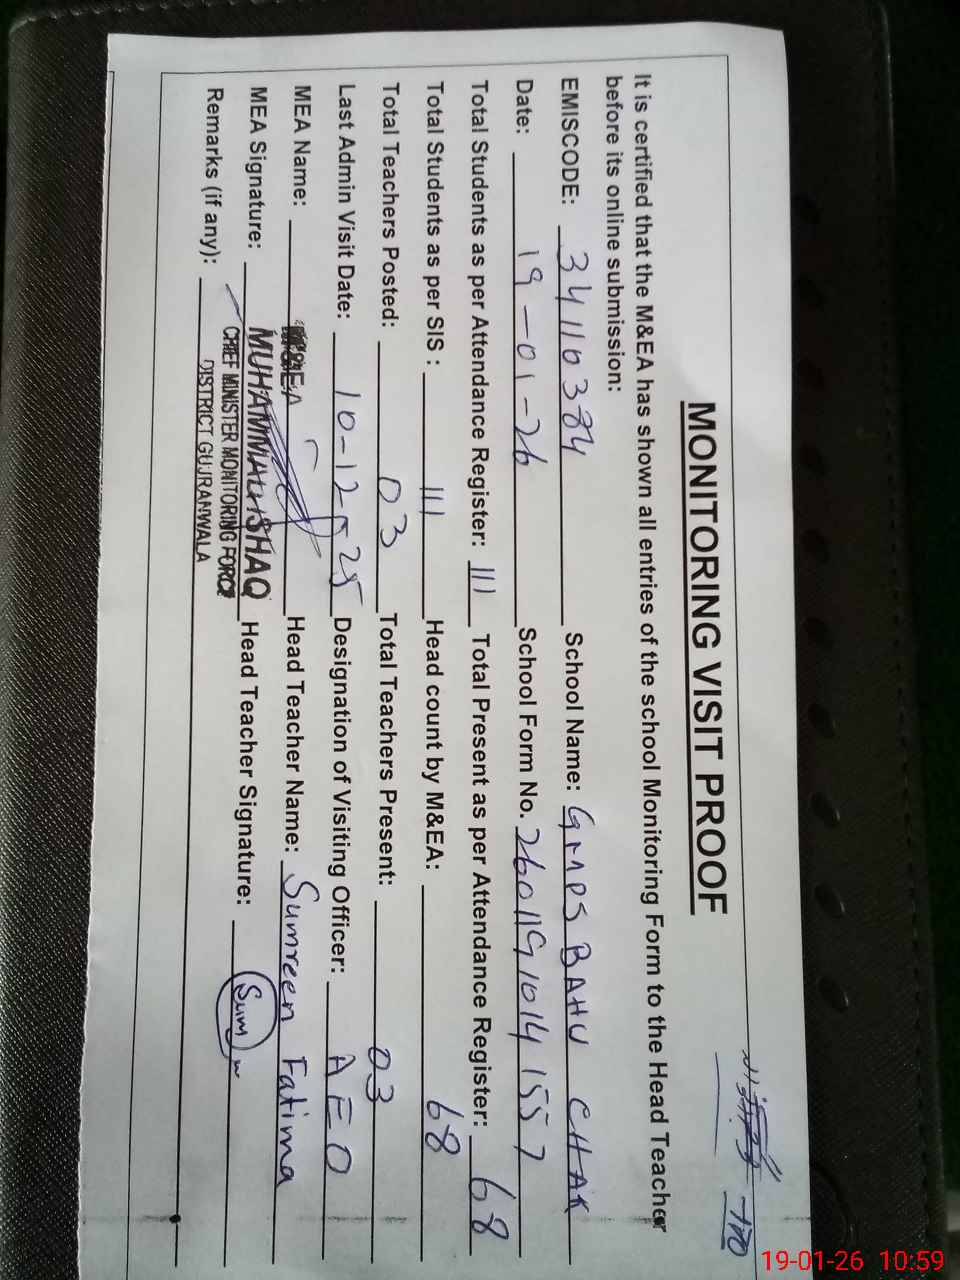 MONITORING VISIT PROOF
It is certified that the M&EA has shown all entries of the school Monitoring Form to the Head Teacher
before its online submission:
EMISCODE: 34110384 School Name: GMPS BAHU CHAK
Date: 19-01-26 School Form No. 26011910141557
Total Students as per Attendance Register: 111 Total Present as per Attendance Register: 68
Total Students as per SIS : 111 Head count by M&EA: 68
Total Teachers Posted: 03 Total Teachers Present: 03
Last Admin Visit Date: 10-12-25 Designation of Visiting Officer: AEO
MEA Name: M&EA Head Teacher Name: Sumreen Fatima
MEA Signature: MUHAMMAD ISHAQ Head Teacher Signature: Sum
CHIEF MINISTER MONITORING FORCE
Remarks (if any): DISTRICT GUJRANWALA
19-01-26 10:59